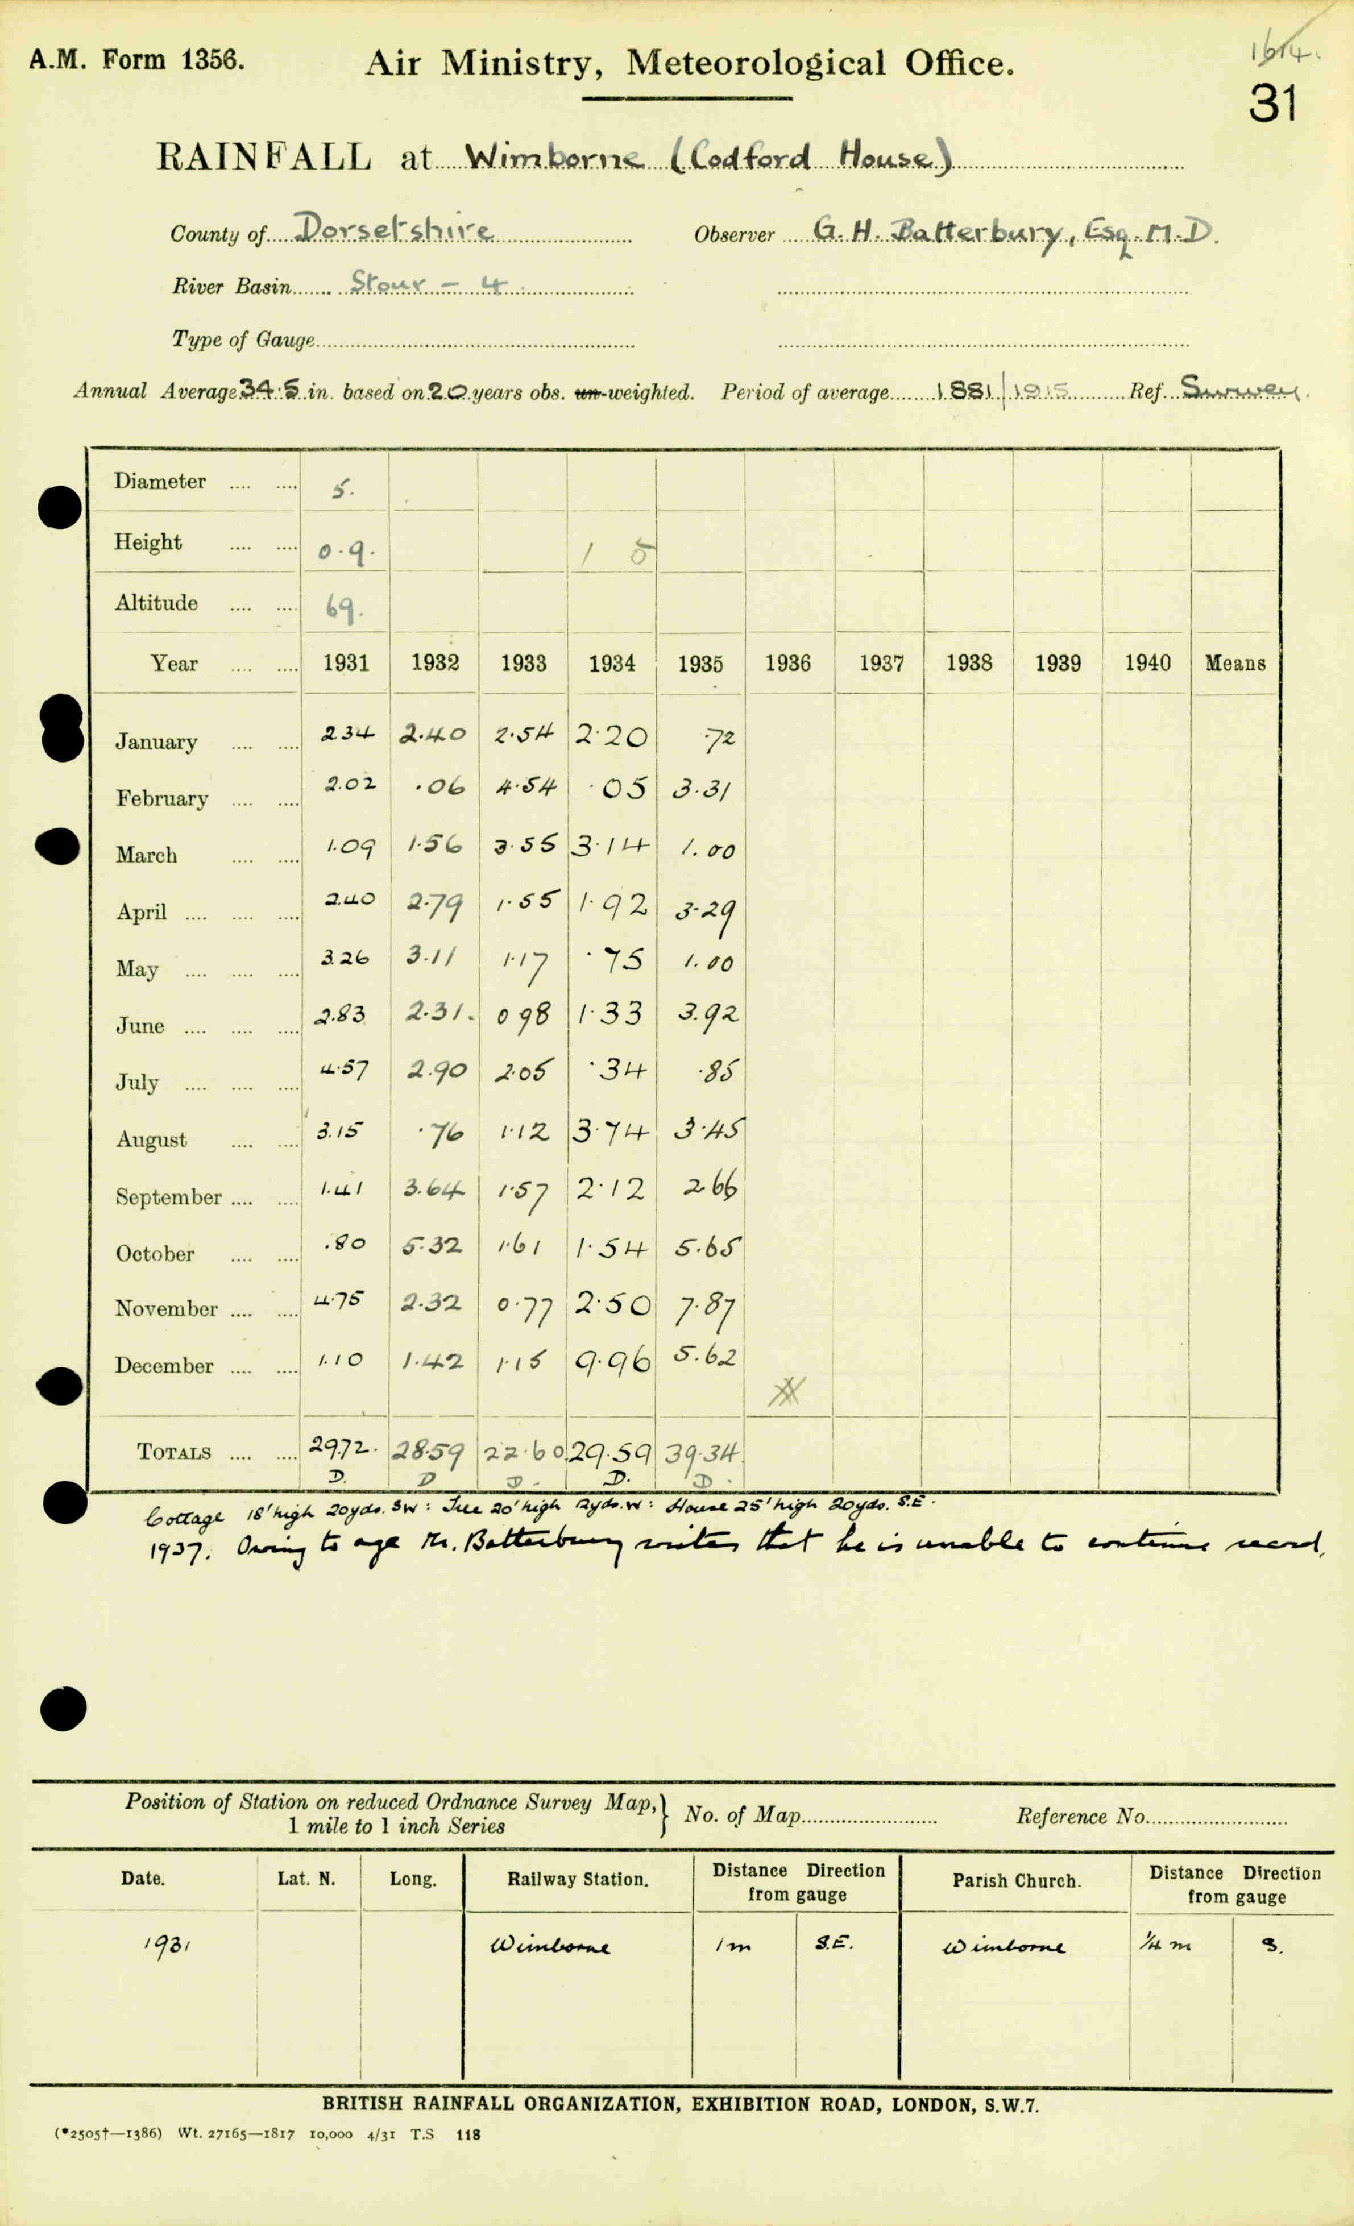 A.M. Form 1356.
Air Ministry, Meteorological Office.
1614.
31
RAINFALL at Wimborne (Codford House)
County of Dorsetshire Observer G. H. Batterbury, Esq. M.D.
River Basin Stour - 4
Type of Gauge
Annual Average 34.5 in. based on 20 years obs. un-weighted. Period of average 1881/1915 Ref. Survey.
Diameter 5.
Height 0.9. 1 5
Altitude 69.
Year 1931 1932 1933 1934 1935 1936 1937 1938 1939 1940 Means
January 2.34 2.40 2.54 2.20 .72
February 2.02 .06 4.54 .05 3.31
March 1.09 1.56 3.55 3.14 1.00
April 2.40 2.79 1.55 1.92 3.29
May 3.26 3.11 1.17 .75 1.00
June 2.83 2.31. 0 98 1.33 3.92
July 4.57 2.90 2.05 .34 .85
August 3.15 .76 1.12 3.74 3.45
September 1.41 3.64 1.57 2.12 2 66
October .80 5.32 1.61 1.54 5.65
November 4.75 2.32 0.77 2.50 7.87
December 1.10 1.42 1.15 9.96 5.62
TOTALS 29.72. 28.59 22.60 29.59 39.34
D. D D. D. D.
Cottage 18' high 20yds. SW: Tree 20' high 12yds. W: House 25' high 20yds. S.E.
1937. Owing to age Mr. Batterbury writes that he is unable to continue record.
Position of Station on reduced Ordnance Survey Map, } No. of Map Reference No.
1 mile to 1 inch Series
Date. Lat. N. Long. Railway Station. Distance Direction from gauge Parish Church. Distance Direction from gauge
1931 Wimborne 1 m S.E. Wimborne ¼ m S.
BRITISH RAINFALL ORGANIZATION, EXHIBITION ROAD, LONDON, S.W.7.
(*2505†—1386) Wt. 27165—1817 10,000 4/31 T.S 118